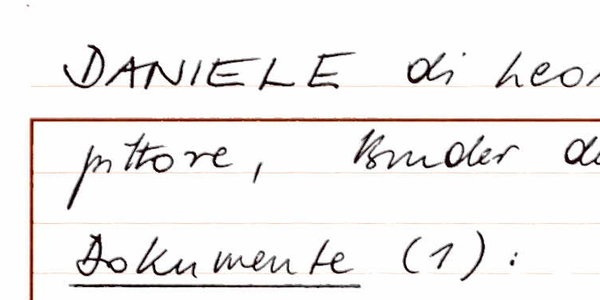 DANIELE di Leon
pittore, Bruder de
Dokumente (1):